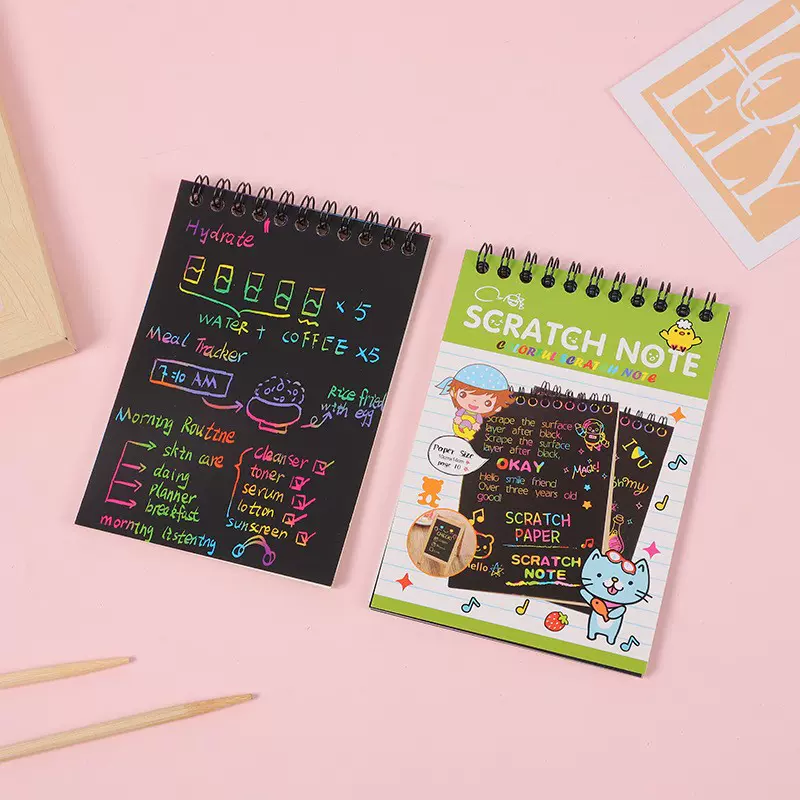 Hydrate
× 5
WATER + COFFEE ×5
Meal Tracker
7:10 AM
Rice fried
with egg
Morning Routine
skin care
daing
planner
breakfast
morning listening
cleanser
toner
serum
lotion
sunscreen
SCRATCH NOTE
COLORFUL SCRATCH NOTE
Scrape the surface
layer after black.
Scrape the surface
layer after black.
OKAY
Magic!
Hello smile friend
Over three years old
good!
SCRATCH
PAPER
SCRATCH
NOTE
Hello
Paper Size
page 10
I ♥ U
LO
ELY